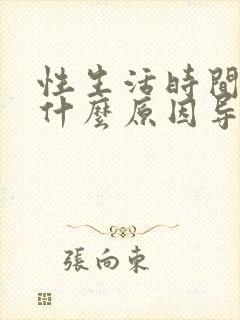 性生活時間
什麼原因导
張向東